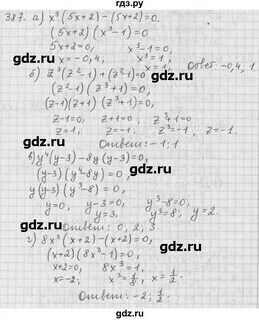 гдз.ру
387. а) x³(5x+2)-(5x+2)=0,
(5x+2)(x³-1)=0
5x+2=0, x³-1=0,
x=-0,4; x³=1,
x=1. Ответ: -0,4; 1
б) z³(z²-1)+(z²-1)=0,
(z²-1)(z³+1)=0,
(z-1)(z+1)(z³+1)=0,
z-1=0 z+1=0; z³+1=0
z=1, z=-1. z³=-1, z=-1.
Ответ: -1; 1
в) y⁴(y-3)-8y(y-3)=0,
(y-3)(y⁴-8y)=0,
y(y-3)(y³-8)=0,
y=0, y-3=0, y³-8=0,
y=3. y³=8, y=2
Ответ: 0, 2, 3
г) 8x³(x+2)-(x+2)=0,
(x+2)(8x³-1)=0,
x+2=0, 8x³=1,
x=-2, x³=1/8, x=1/2.
Ответ: -2, 1/2.